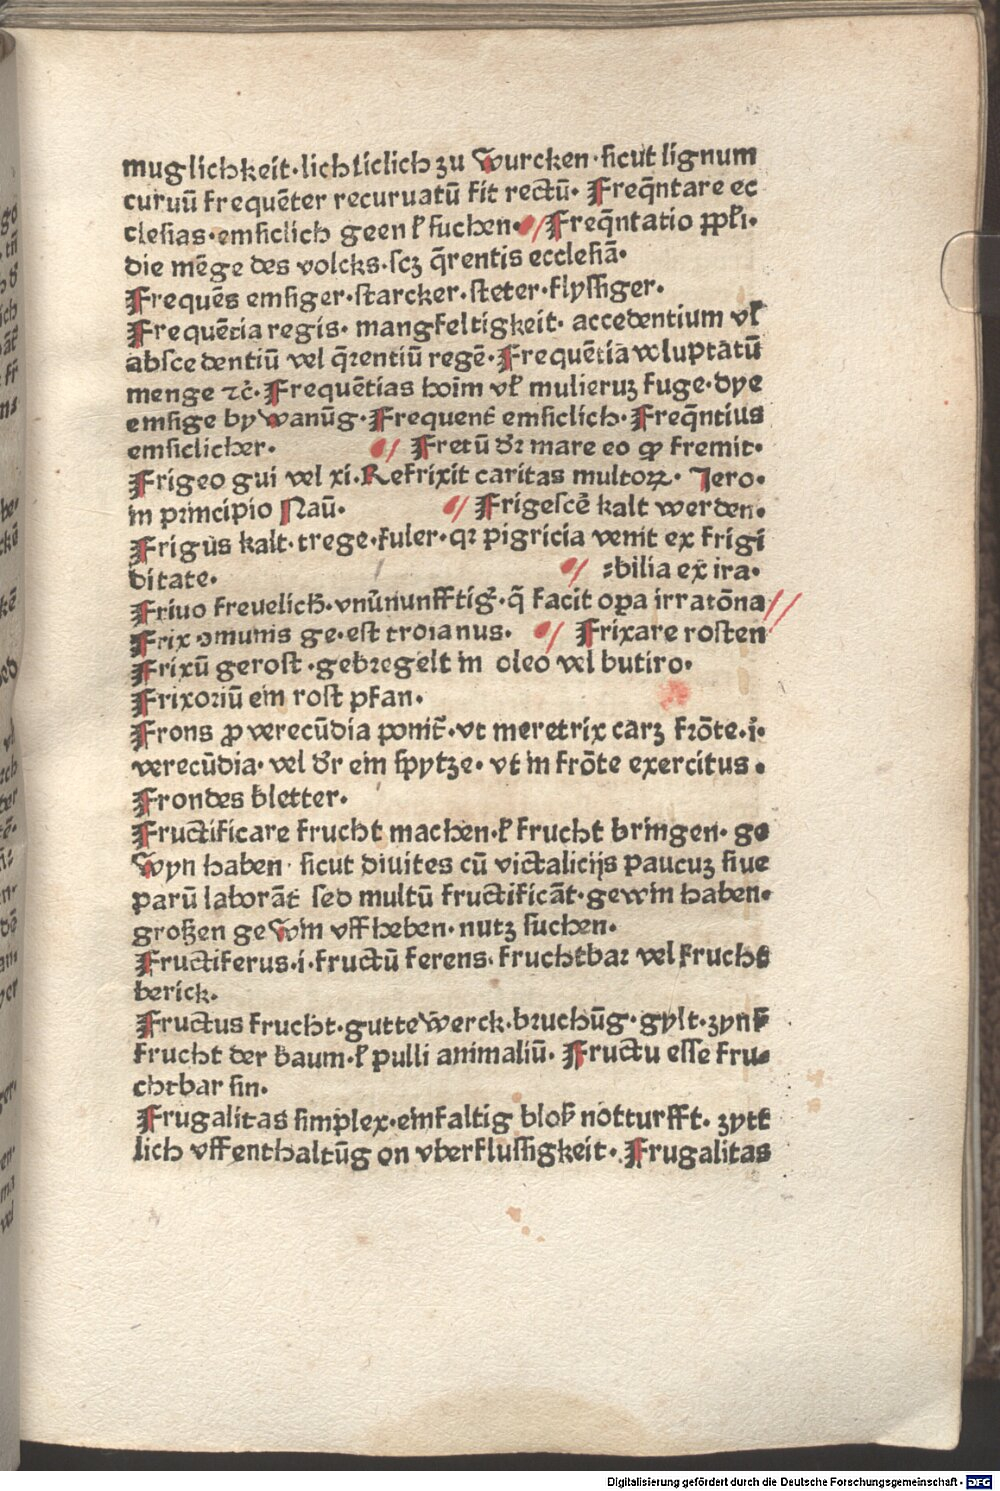 muglichkeit·lichticlich zu wurcken·sicut lignum
curuũ frequẽter recuruatũ fit rectũ· Freqñtare ec
clesias·emsiclich geen ł suchen· Freqñtatio ppłi·
die mẽge des volcks·scz q̃rentis ecclesiã·
Frequẽs emsiger·starcker·steter·flyssiger·
Frequẽtia regis· mangfeltigkeit· accedentium vł
abscedentiũ vel q̃rentiũ regẽ·Frequẽtia voluptatũ
menge ⁊c̃·Frequẽtias hoĩm vł mulieruz fuge·dye
emsige bywanũg·Frequent̃ emsiclich·Freqñtius
emsiclicher· Fretũ dr̃ mare eo ꝙ fremit·
Frigeo gui vel xi·Refrixit caritas multoꝝ· Jero·
in principio Naũ· Frigescẽ kalt werden·
Frigus kalt·trege·fuler·qꝛ pigricia venit ex frigi
ditate· ⸗bilia ex ira·
Friuo freuelich·vnũnunfftig·q̃ facit oꝑa irratõna
Frix ꝯmunis ge·est troianus· Frixare rosten
Frixũ gerost·gebregelt in oleo vel butiro·
Frixoriũ ein rost pfan·
Frons ꝓ verecũdia ponit̃·vt meretrix carꝫ frõte·i·
verecũdia· vel dr̃ ein spytze· vt in frõte exercitus·
Frondes bletter·
Fructificare frucht machen·ł frucht bringen· ge
wyn haben· sicut diuites cũ victalicijs paucuz siue
parũ laborãt sed multũ fructificãt·gewin haben·
großen gewin vffheben·nutz suchen·
Fructiferus·i·fructũ ferens·fruchtbar vel frucht
berick·
Fructus frucht·gutte werck·bruchũg·gylt·zynß
frucht der baum·ł pulli animaliũ· Fructu esse fru⸗
chtbar sin·
Frugalitas simplex·einfaltig bloß notturfft· zytt
lich vffenthaltũg on vberflussigkeit· Frugalitas
Digitalisierung gefördert durch die Deutsche Forschungsgemeinschaft - DFG